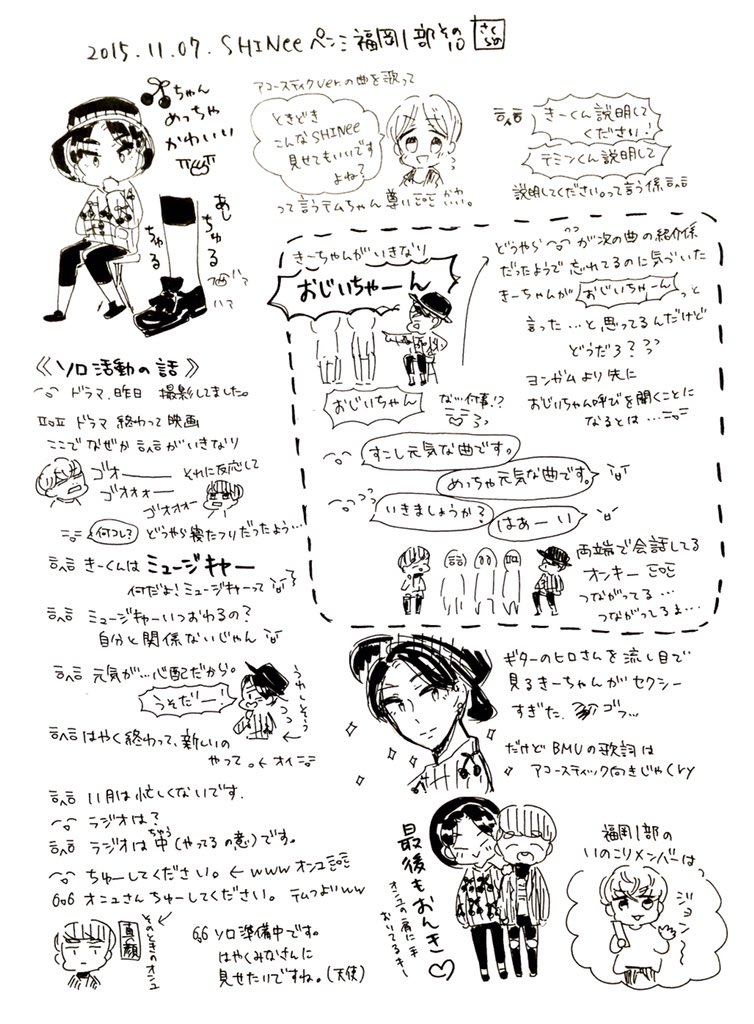 2015.11.07. SHINee ペンミ福岡1部 その10
さくらめ
ちゃん
めっちゃ
かわいい
あし
ちゅる
ちゅる
アコースティクver.の曲を歌って
ときどき
こんなSHINee
見せてもいいです
よね?
って言うテムちゃん尊い かわいい。
きーくん説明して
ください!
テミンくん説明して
説明してください。って言う係
きーちゃんがいきなり
おじいちゃーん
おじいちゃん
な…何事!?
どうやら が次の曲の紹介係
だったようで忘れてるのに気づいた
きーちゃんが おじいちゃーん っと
言った…と思ってるんだけど
どうだろ?
ヨンガムより先に
おじいちゃん呼びを聞くことに
なるとは…
すこし元気な曲です。
めっちゃ元気な曲です。
いきましょうか?
はあーい
両端で会話してる
オンキー
つながってる…
つながってるよ…
《ソロ活動の話》
ドラマ、昨日 撮影しました。
ドラマ 終わって映画
ここでなぜか がいきなり
ゴオーー
ゴオオォー
ゴオオォー
それに反応して
何コレ?
どうやら寝たフリだったよう…
きーくんは ミュージキャー
何だよ!ミュージキャーって
ミュージキャーいつおわるの?
自分と関係ないじゃん
元気が…心配だから。
うそだー!
うれしそう
はやく終わって、新しいの
やって。← オイ
11月は忙しくないです。
ラジオは?
ラジオは中(やってるの意)です。
ちゅう
ちゅーしてください。← www オンユ
オニュさんちゅーしてください。 テムつよww
真顔
そのときのオンユ
ソロ準備中です。
はやくみなさんに
見せたいですね。(天使)
ギターのヒロさんを流し目で
見るきーちゃんがセクシー
すぎた。 ゴフ…
だけどBMUの歌詞は
アコースティック向きじゃ cry
最後もおんき♡
オンユの肩に手
おいてるキー
福岡1部の
いのこりメンバーは
ジョン